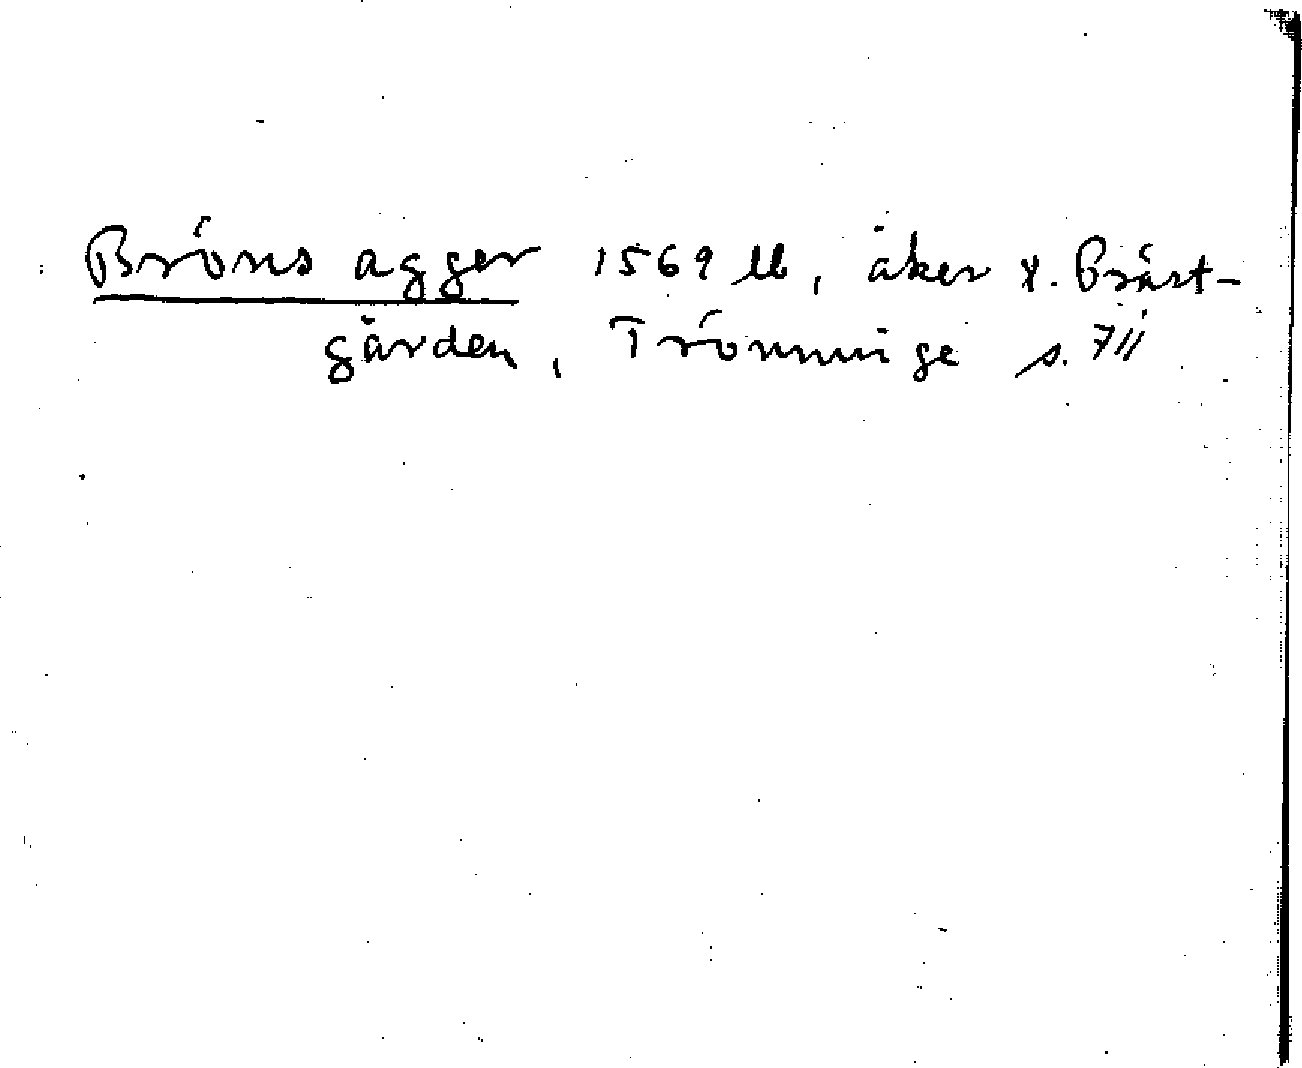 Bröns agger 1569 lb, åker t. Präst-
gården, Trönninge s. 711